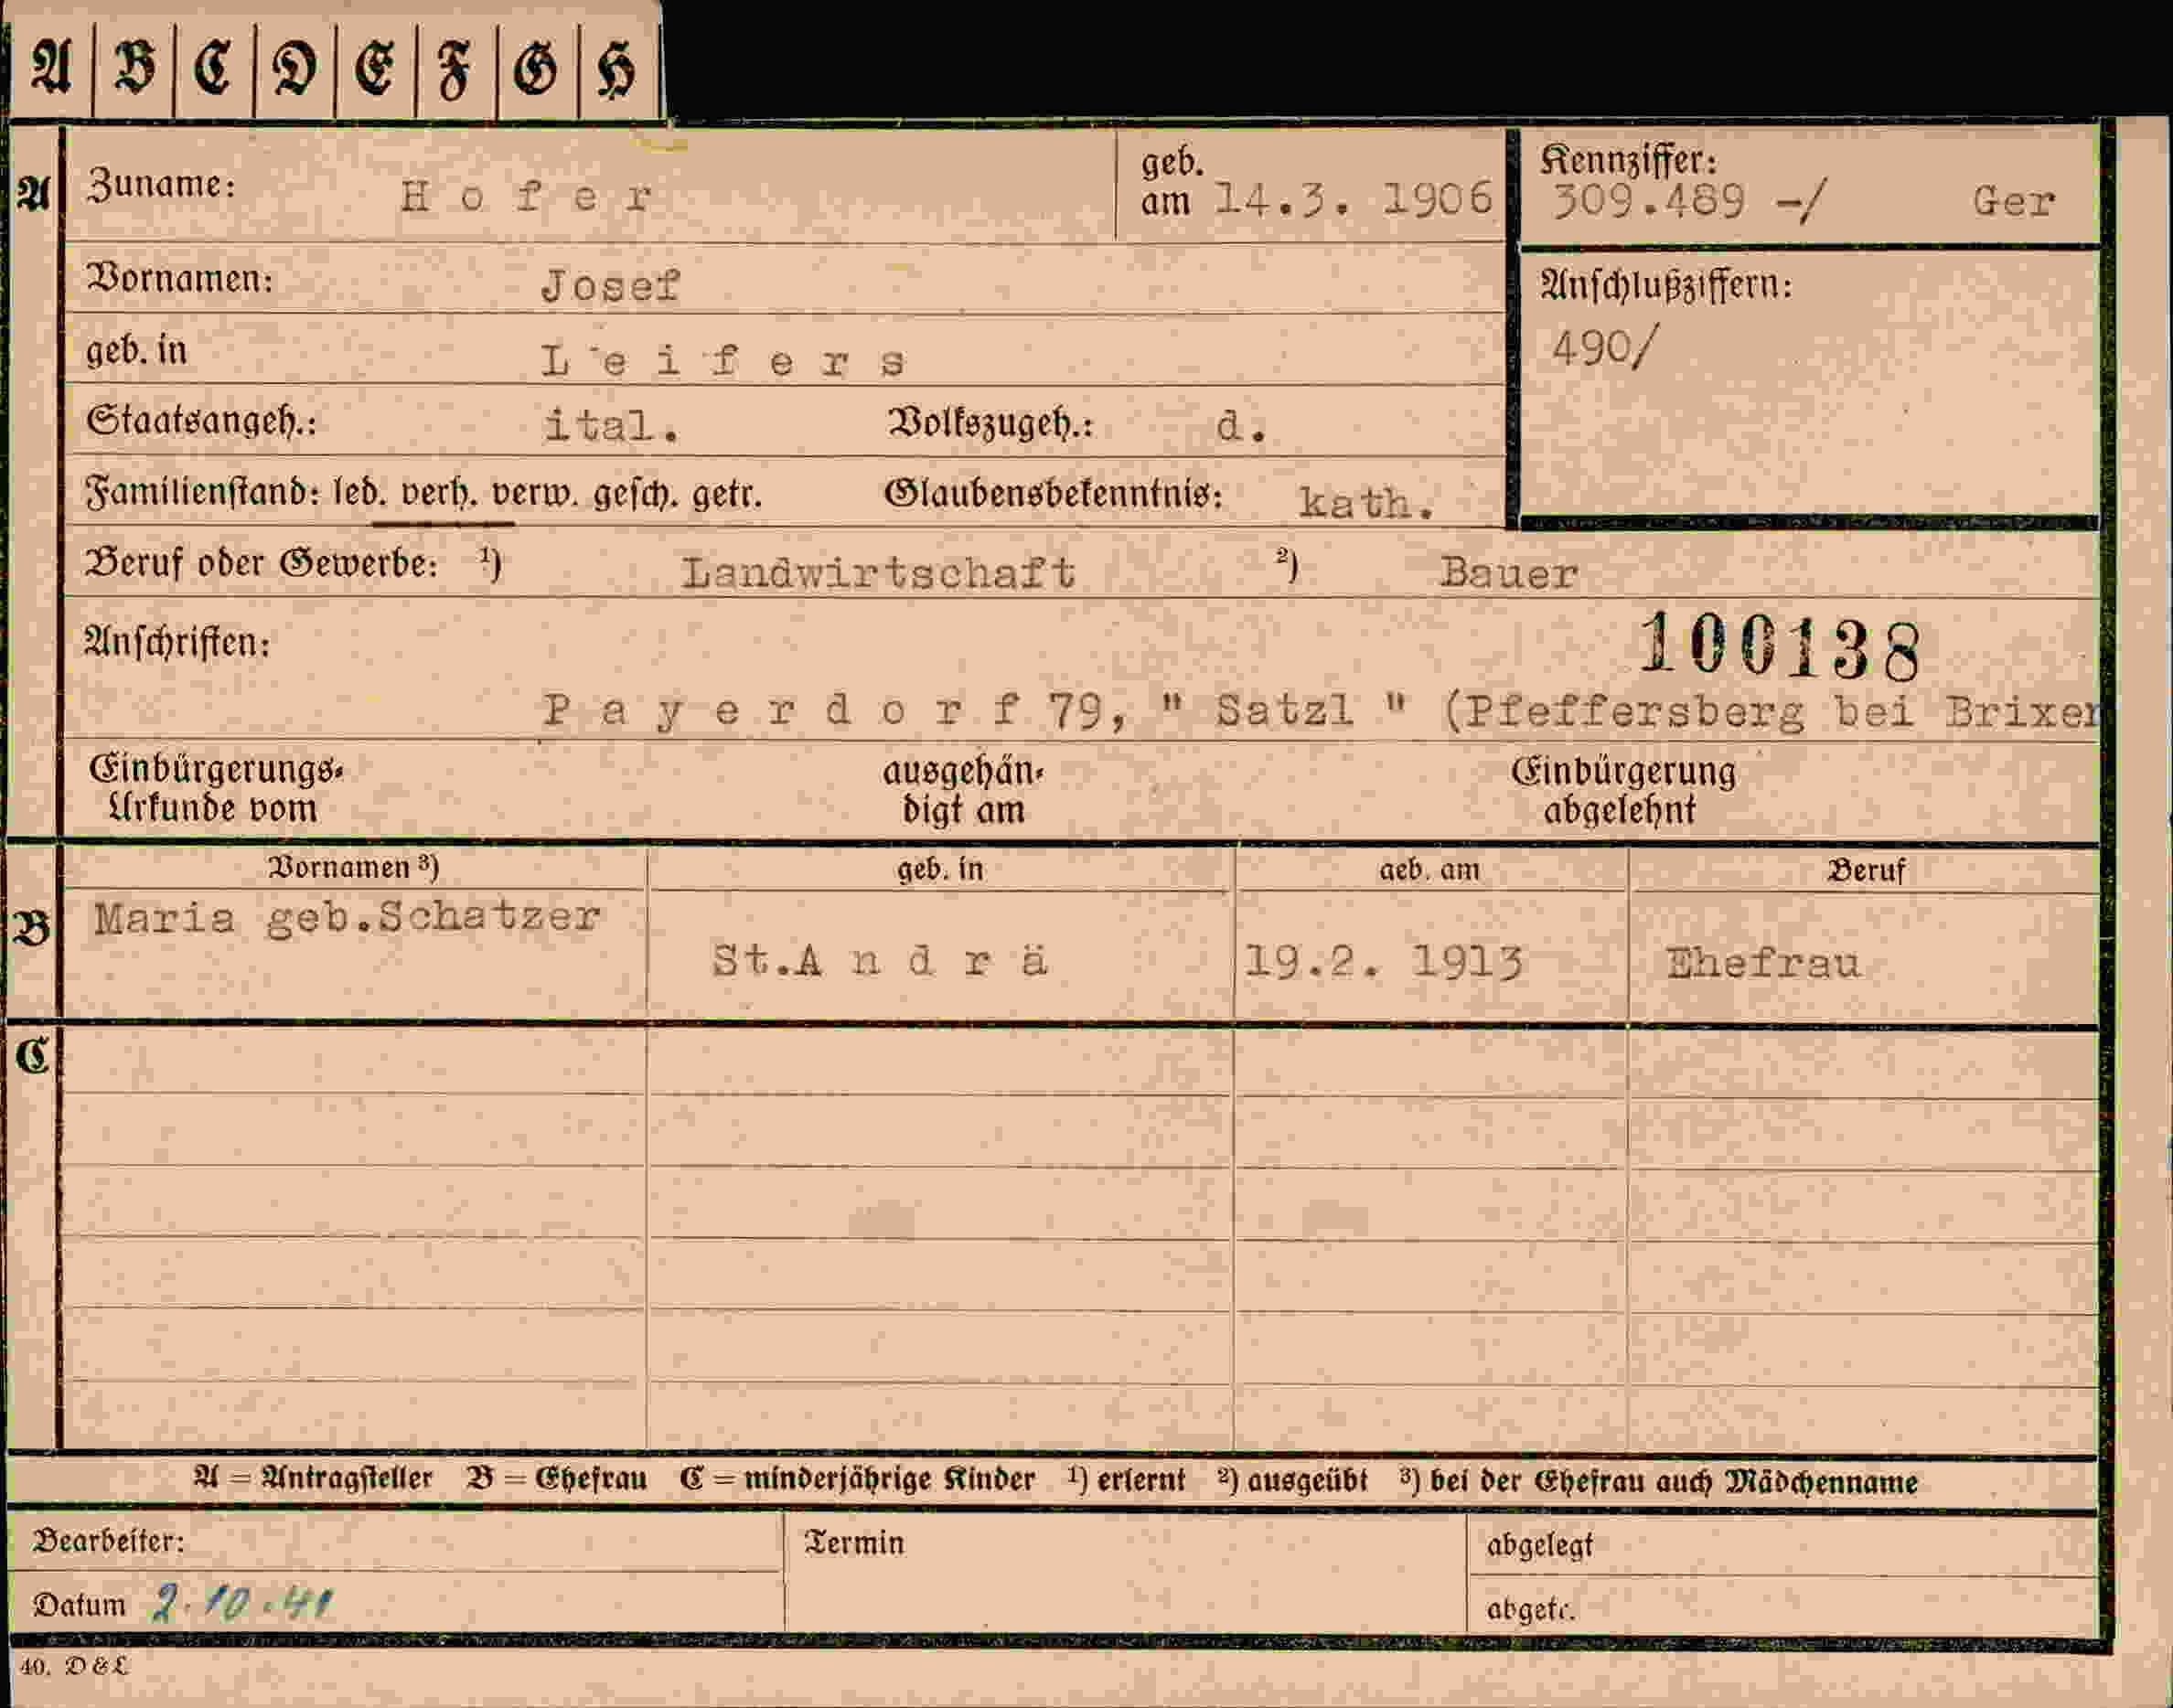 A B C D E F G H
A Zuname: Hofer geb. am 14.3. 1906 Kennziffer: 309.489 -/ Ger
Vornamen: Josef Anschlußziffern:
geb. in Leifers 490/
Staatsangeh.: ital. Volkszugeh.: d.
Familienstand: led. verh. verw. gesch. getr. Glaubensbekenntnis: kath.
Beruf oder Gewerbe: ¹) Landwirtschaft ²) Bauer
Anschriften: 100138
Payerdorf 79, " Satzl " (Pfeffersberg bei Brixen
Einbürgerungs- ausgehän- Einbürgerung
Urkunde vom digt am abgelehnt
Vornamen ³) geb. in geb. am Beruf
B Maria geb.Schatzer
St.Andrä 19.2. 1913 Ehefrau
C
A = Antragsteller B = Ehefrau C = minderjährige Kinder ¹) erlernt ²) ausgeübt ³) bei der Ehefrau auch Mädchenname
Bearbeiter: Termin abgelegt
Datum 2.10.41 abgetr.
40. D & L